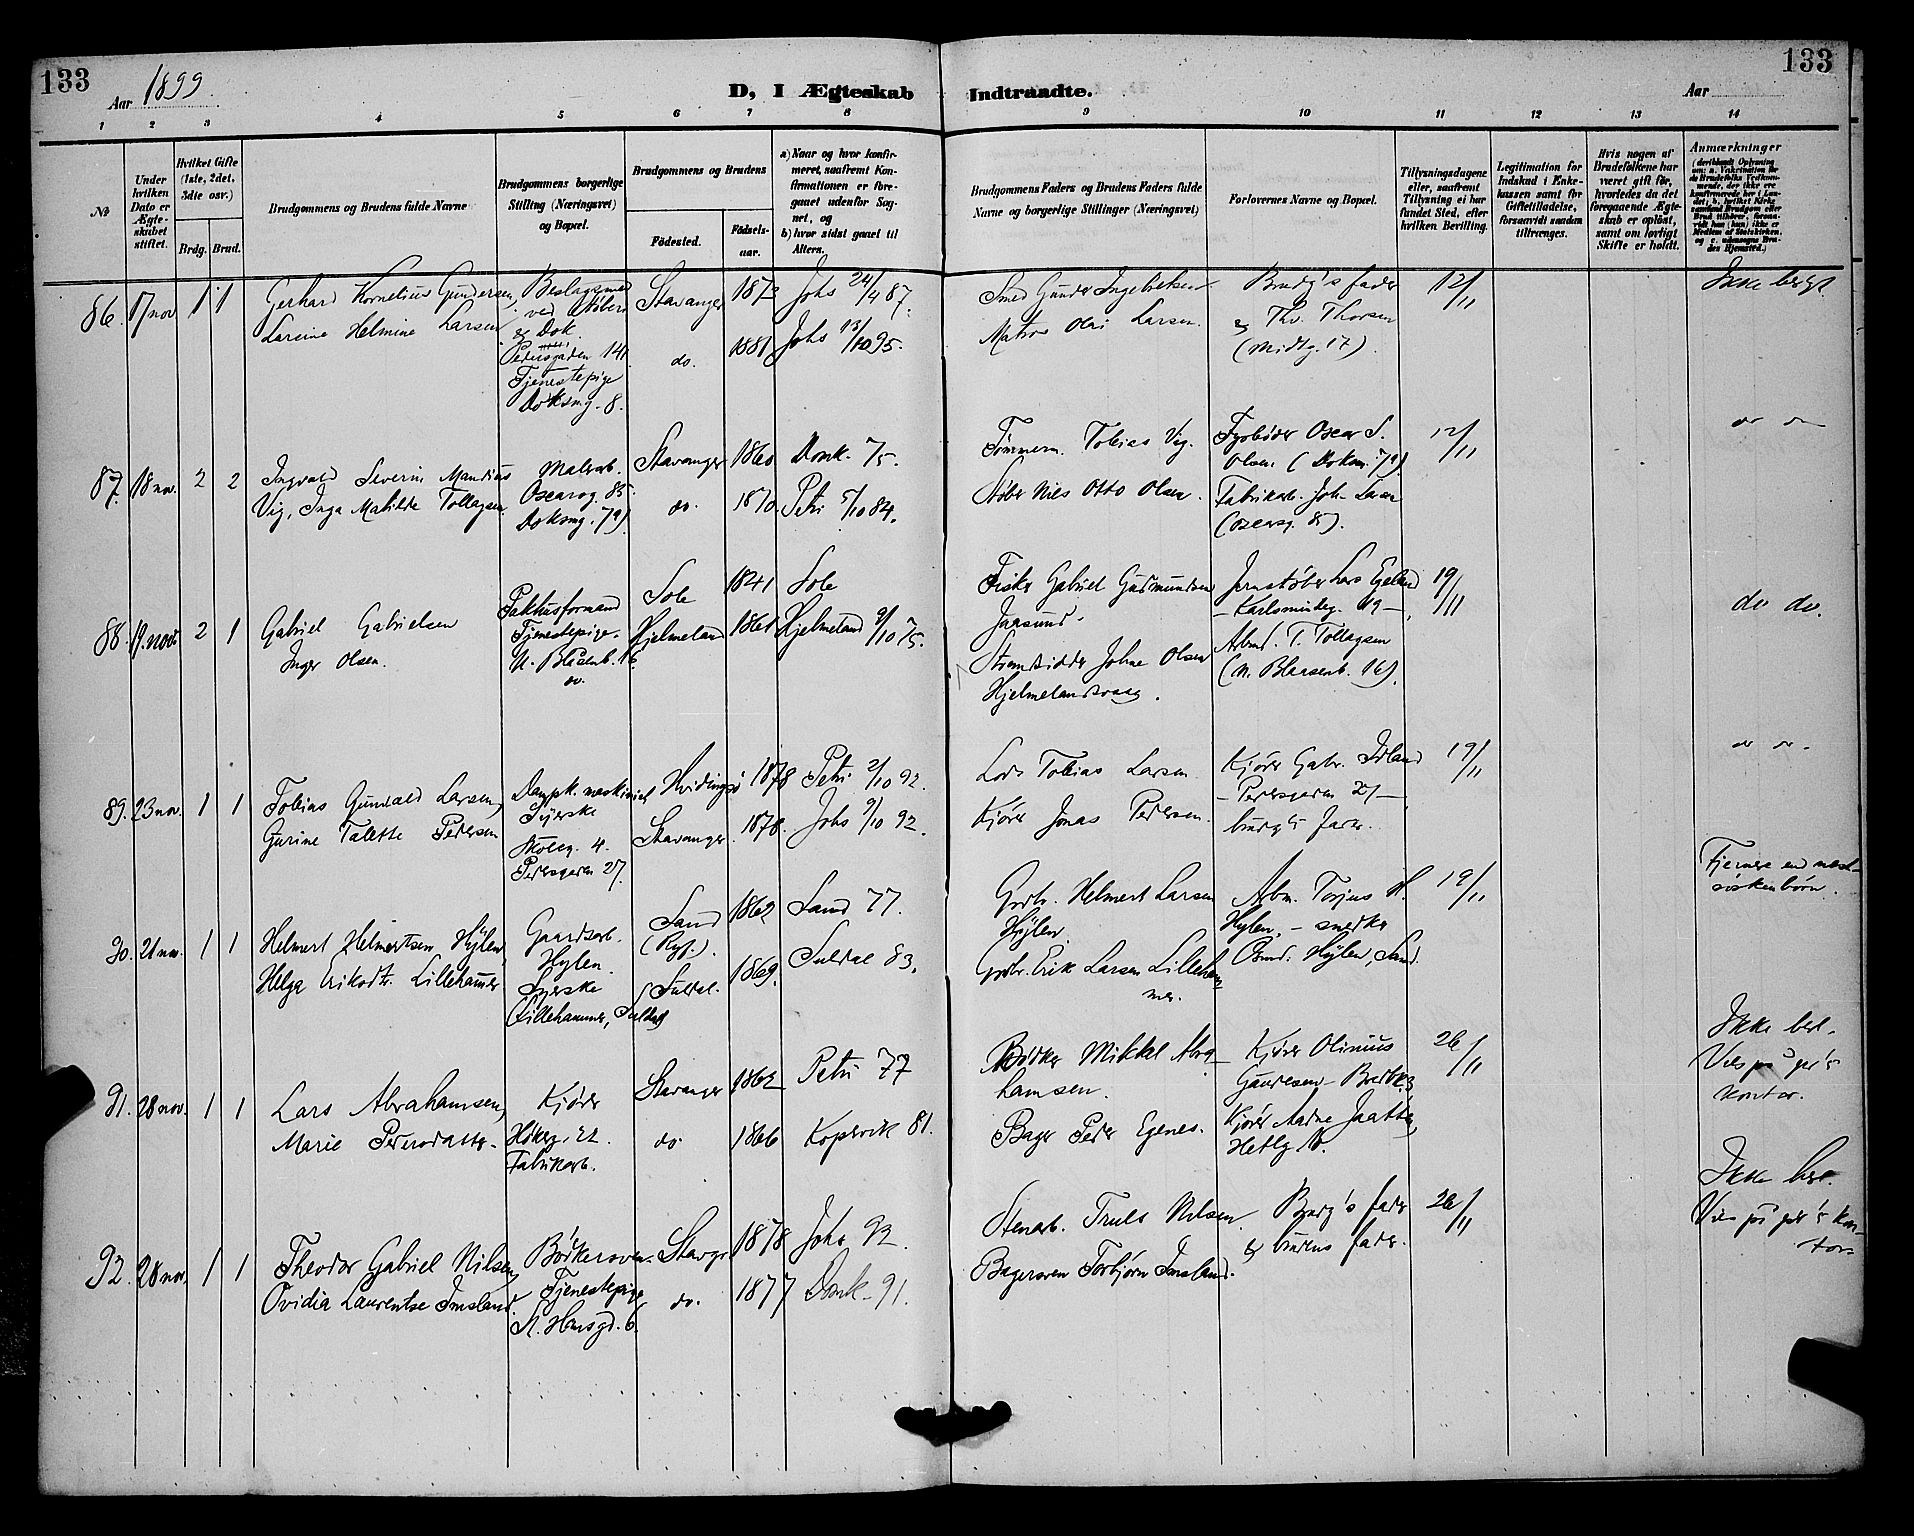 133
Aar 1899
D, I Ægteskab Indtraadte.
Aar
133
1 2 3 4 5 6 7 8 9 10 11 12 13 14
№
Under hvilken Dato er Ægteskabet stiftet.
Hvilket Gifte (1ste, 2det, 3die osr.)
Brdg. Brud.
Brudgommens og Brudens fulde Navne
Brudgommens borgerlige Stilling (Næringsvei) og Bopæl.
Brudgommens og Brudens
Födested. Födselsaar.
a) Naar og hvor konfirmeret, saafremt Konfirmationen er foregaaet udenfor Sognet, og
b) hvor sidst gaaet til Alters.
Brudgommens Faders og Brudens Faders fulde Navne og borgerlige Stillinger (Næringsvei)
Forlovernes Navne og Bopæl.
Tillysningsdagene eller, saafremt Tillysning ei har fundet Sted, efter hvilken Bevilling.
Legitimation for Indskud i Enkekassen samt for Giftetilladelse, forsaavidt saadan tiltrænges.
Hvis nogen af Brudefolkene har været gift för, hvorledes da det foregaaende Ægteskab er oplöst, samt om lovligt Skifte er holdt.
Anmærkninger
86. 17 nov 1 1
Gerhard Kornelius Gundersen,
Larine Helmine Larsen
Beslagsmed
ved Stöberi
og Dok
Pedersgaden 141
Tjenestepige
Doksmg. 8.
Stavanger 1873 Johs 24/4 87.
do. 1881 Johs 13/10 95.
Smed Gunder Ingebretsen
Matros Olai Larsen.
Brudg's fader
og Th. Thorsen
(Midtg. 17).
12/11
Ikke besl.
87. 18 nov. 2 2
Ingvald Severin Mandius
Vig, Inga Matilde Tollagsen
Malerarb.
Oscarsg. 85.
Doksmg. 79)
Stavanger 1860 Domk. 75.
do. 1870. Petri 5/10 84.
Tømmerm. Tobias Vig.
Støber Nils Otto Olsen.
Fyrbøder Oscar S.
Olsen (Doksm. 79)
Fabrikarb. Joh. Larsen
(Oscarsg. 85).
12/11
do do
88. 19. nov. 2 1
Gabriel Gabrielsen
Inger Olsen.
Pakhusformand
Tjenestepige.
N. Blåsenb. 16
do.
Sole 1841 Sole
Hjelmeland 1861 Hjelmeland 9/10 75.
Fisker Gabriel Gudmundsen
Jaasund.
Strandsidder Johne Olsen
Hjelmelandsvaag.
Jernstøber Lars Egeland
– Karlsminneg. 49 –
Arbmd. T. Tollagsen
(N. Blaasenb. 16).
19/11
do do.
89. 23 nov. 1 1
Tobias Gunvald Larsen,
Gurine Talette Pedersen
Dampk. maskinist
Syerske
Skoleg. 4.
Pedersgaden 27.
Hvidingsö 1878 Petri 2/10 92.
Stavanger. 1878. Johs 9/10 92.
Lods Tobias Larsen
Kjører Jonas Pedersen.
Kjører Gabr. Idland
– Pedersgaden 27 –
brudg's fader.
19/11
do do.
90. 21 nov. 1 1
Helmert Helmertsen Hylen,
Helga Eriksdtr. Lillehammer
Gaardsarb.
Hylen.
Syerske
(Lillehammer, Suldal)
Sand (Ryf.) 1862 Sand 77.
Suldal. 1869. Suldal 83.
Grdbr. Helmert Larsen
Hylen
Grdbr. Erik Larsen Lillehammer.
Arbm. Torjus H.
Hylen, – snedker
Osmd. Hylen, Sand.
19/11
Fjernere en næst-
søskenbørn.
91. 28 nov. 1 1
Lars Abrahamsen,
Marie Pedersdatter.
Kjører
Høkerg. 22.
Fabrikarb.
Stavanger 1862 Petri 77
do. 1866 Kopervik 81.
Bødker Mikkel Abra-
hamsen.
Bager Peder Egenes.
Kjører Olinius
Gaudesen Bredbkg
Kjører Aadne Jaatten,
Hetlg 10.
26/11
Ikke besl.
Vies på pr's
kontor.
92. 28 nov. 1 1
Theodor Gabriel Nilsen,
Ovidia Laurentse Imsland.
Bödkersven.
Tjenestepige
St. Hansgd. 6.
Stavgr 1878 Johs 92.
do. 1877 Domk. 91.
Stenarb. Truls Nilsen.
Bagersven Torbjørn Imsland.
Brudg's fader
og brudens fader.
26/11
Ikke besl.
Vies på pr's kon-
tor